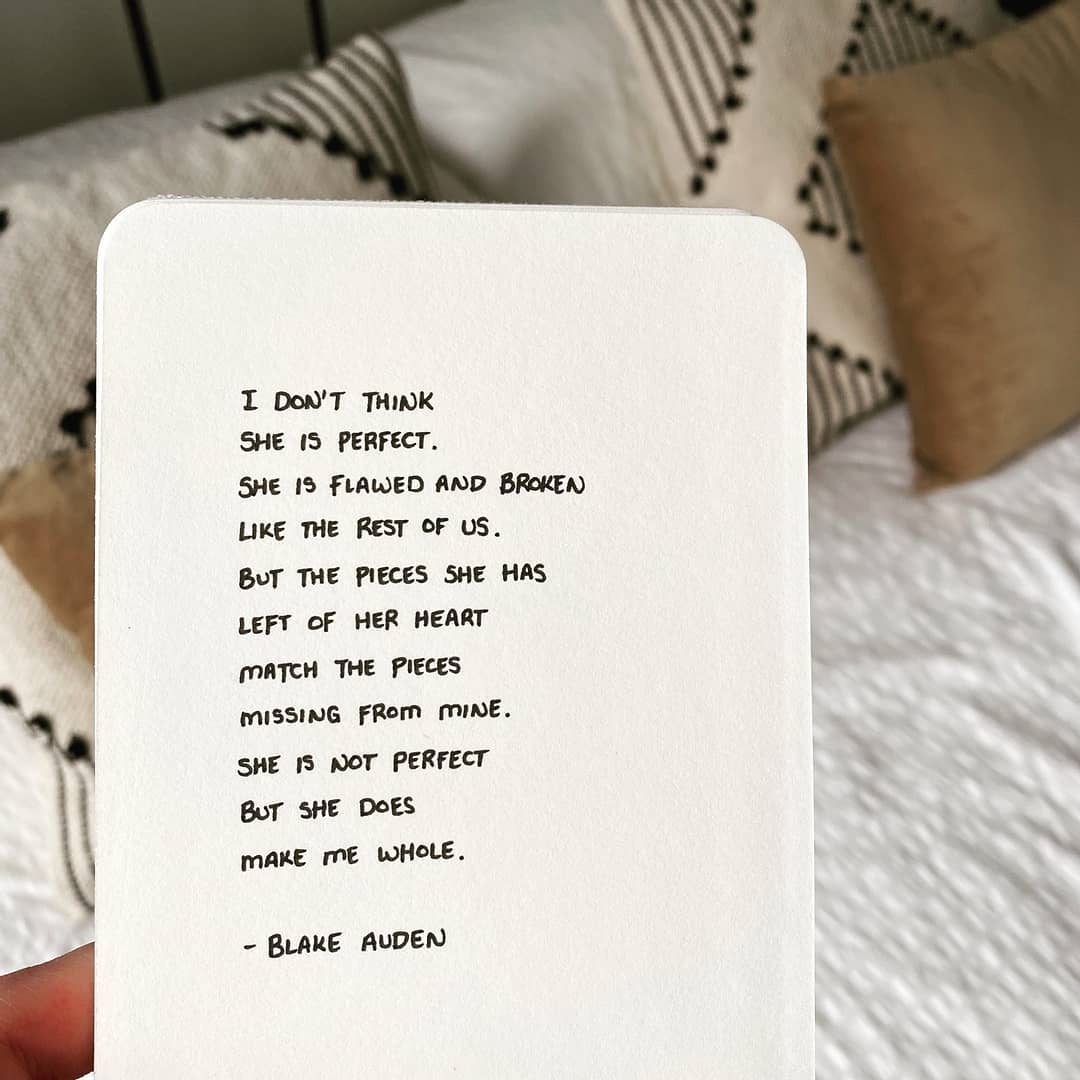 I DON'T THINK
SHE IS PERFECT.
SHE IS FLAWED AND BROKEN
LIKE THE REST OF US.
BUT THE PIECES SHE HAS
LEFT OF HER HEART
MATCH THE PIECES
MISSING FROM MINE.
SHE IS NOT PERFECT
BUT SHE DOES
MAKE ME WHOLE.
- BLAKE AUDEN